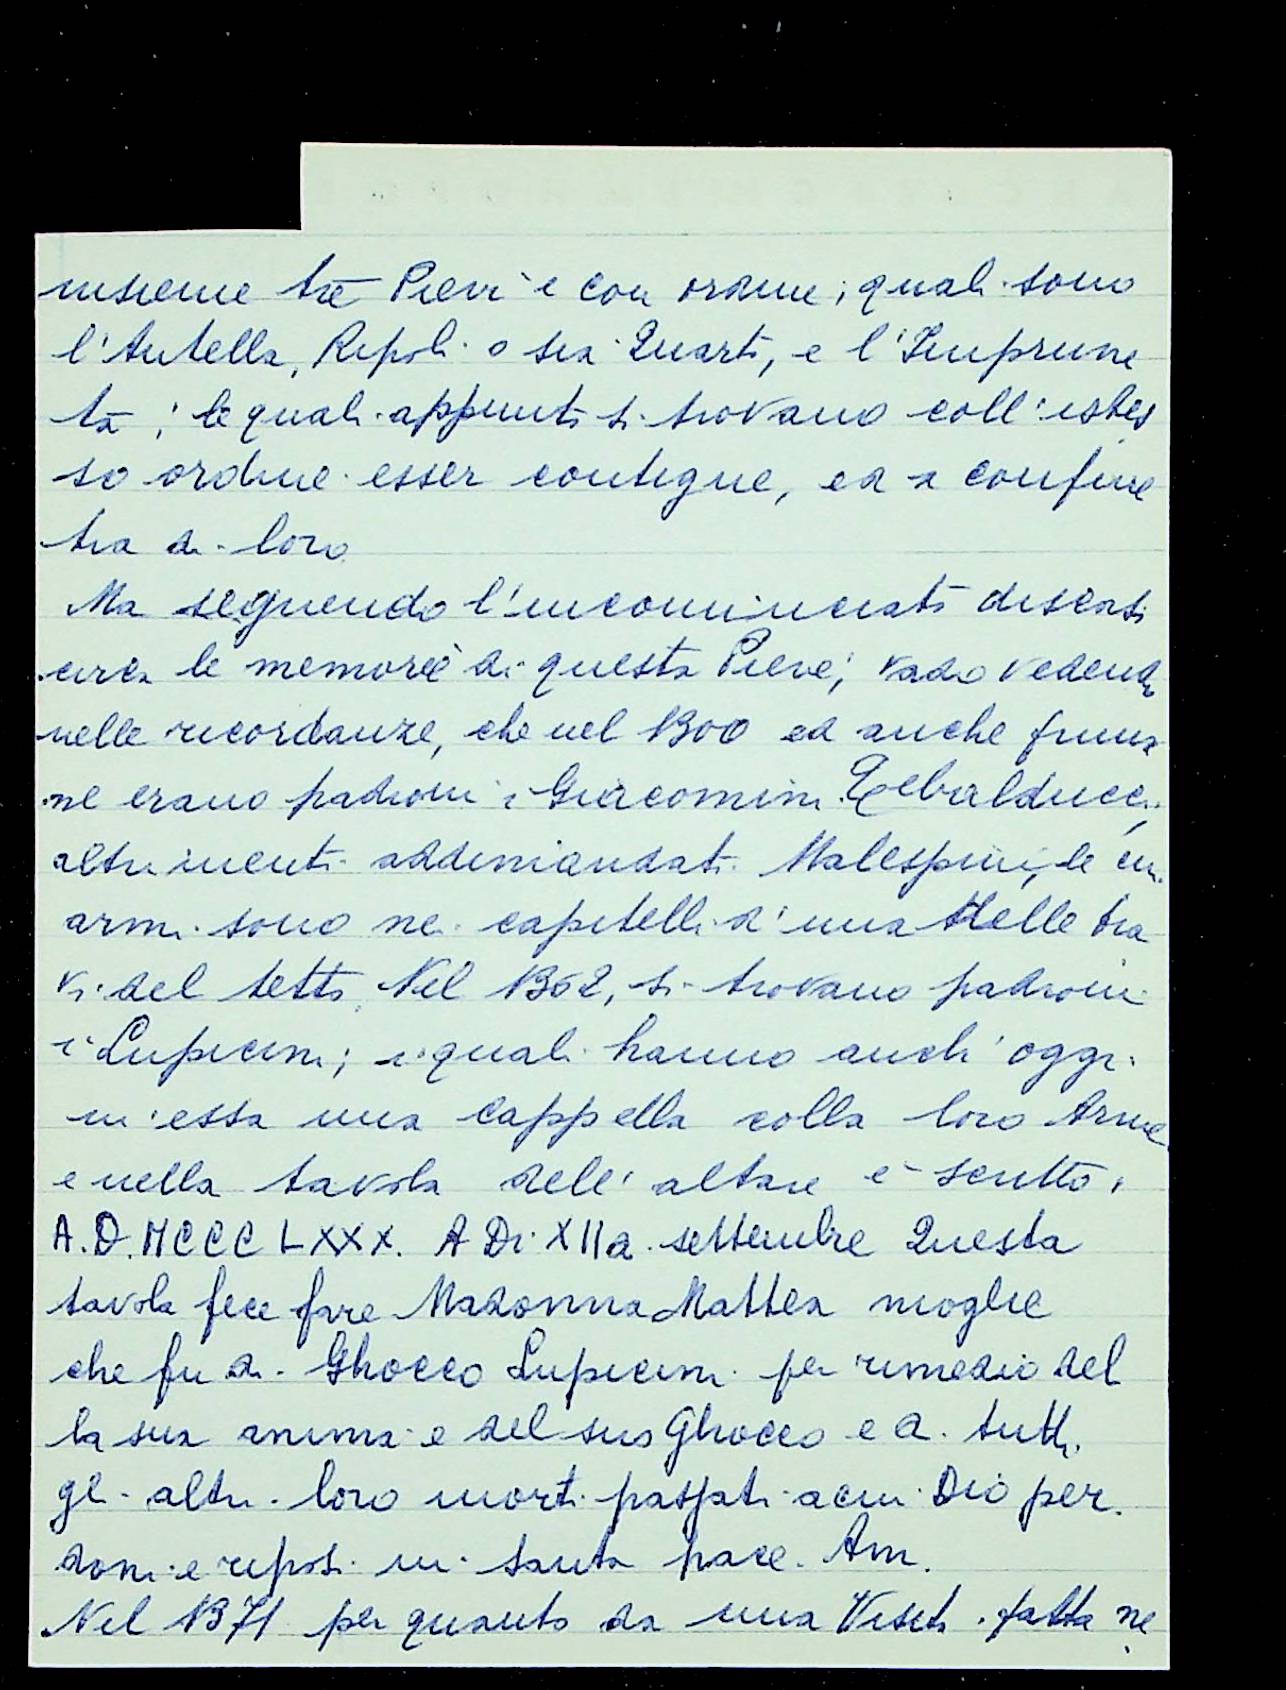 insieme tre Pievi e con ordine; quali sono
l'Antella, Ripoli o sia Quarto, e l'Imprune
ta; le quali appunto si trovano coll'istes
so ordine esser contigue, ed a confine
tra di loro
Ma seguendo l'incominciato discorso
circa le memorie di questa Pieve, vado vedendo
nelle ricordanze, che nel 1300 ed anche prima
ne erano padroni i Giacomini Tebalducci,
altrimenti addimandati Malespini, le cui
armi sono ne capitelli d'una delle tra
vi del tetto. Nel 1362, si trovano padroni
i Lupicini; i quali hanno anch'oggi
in essa una cappella colla loro Arme
e nella tavola dell'altare è scritto:
A.D. MCCCLXXX. A Di XIIa settembre Questa
tavola fece fare Madonna Mattea moglie
che fu di Ghocco Lupicini per rimedio del
la sua anima e del suo Ghocco e a tutti
gli altri loro morti passati a cui Dio per
doni e riposi in santa pace. Am.
Nel 1371 per quanto da una Visita fatta ne